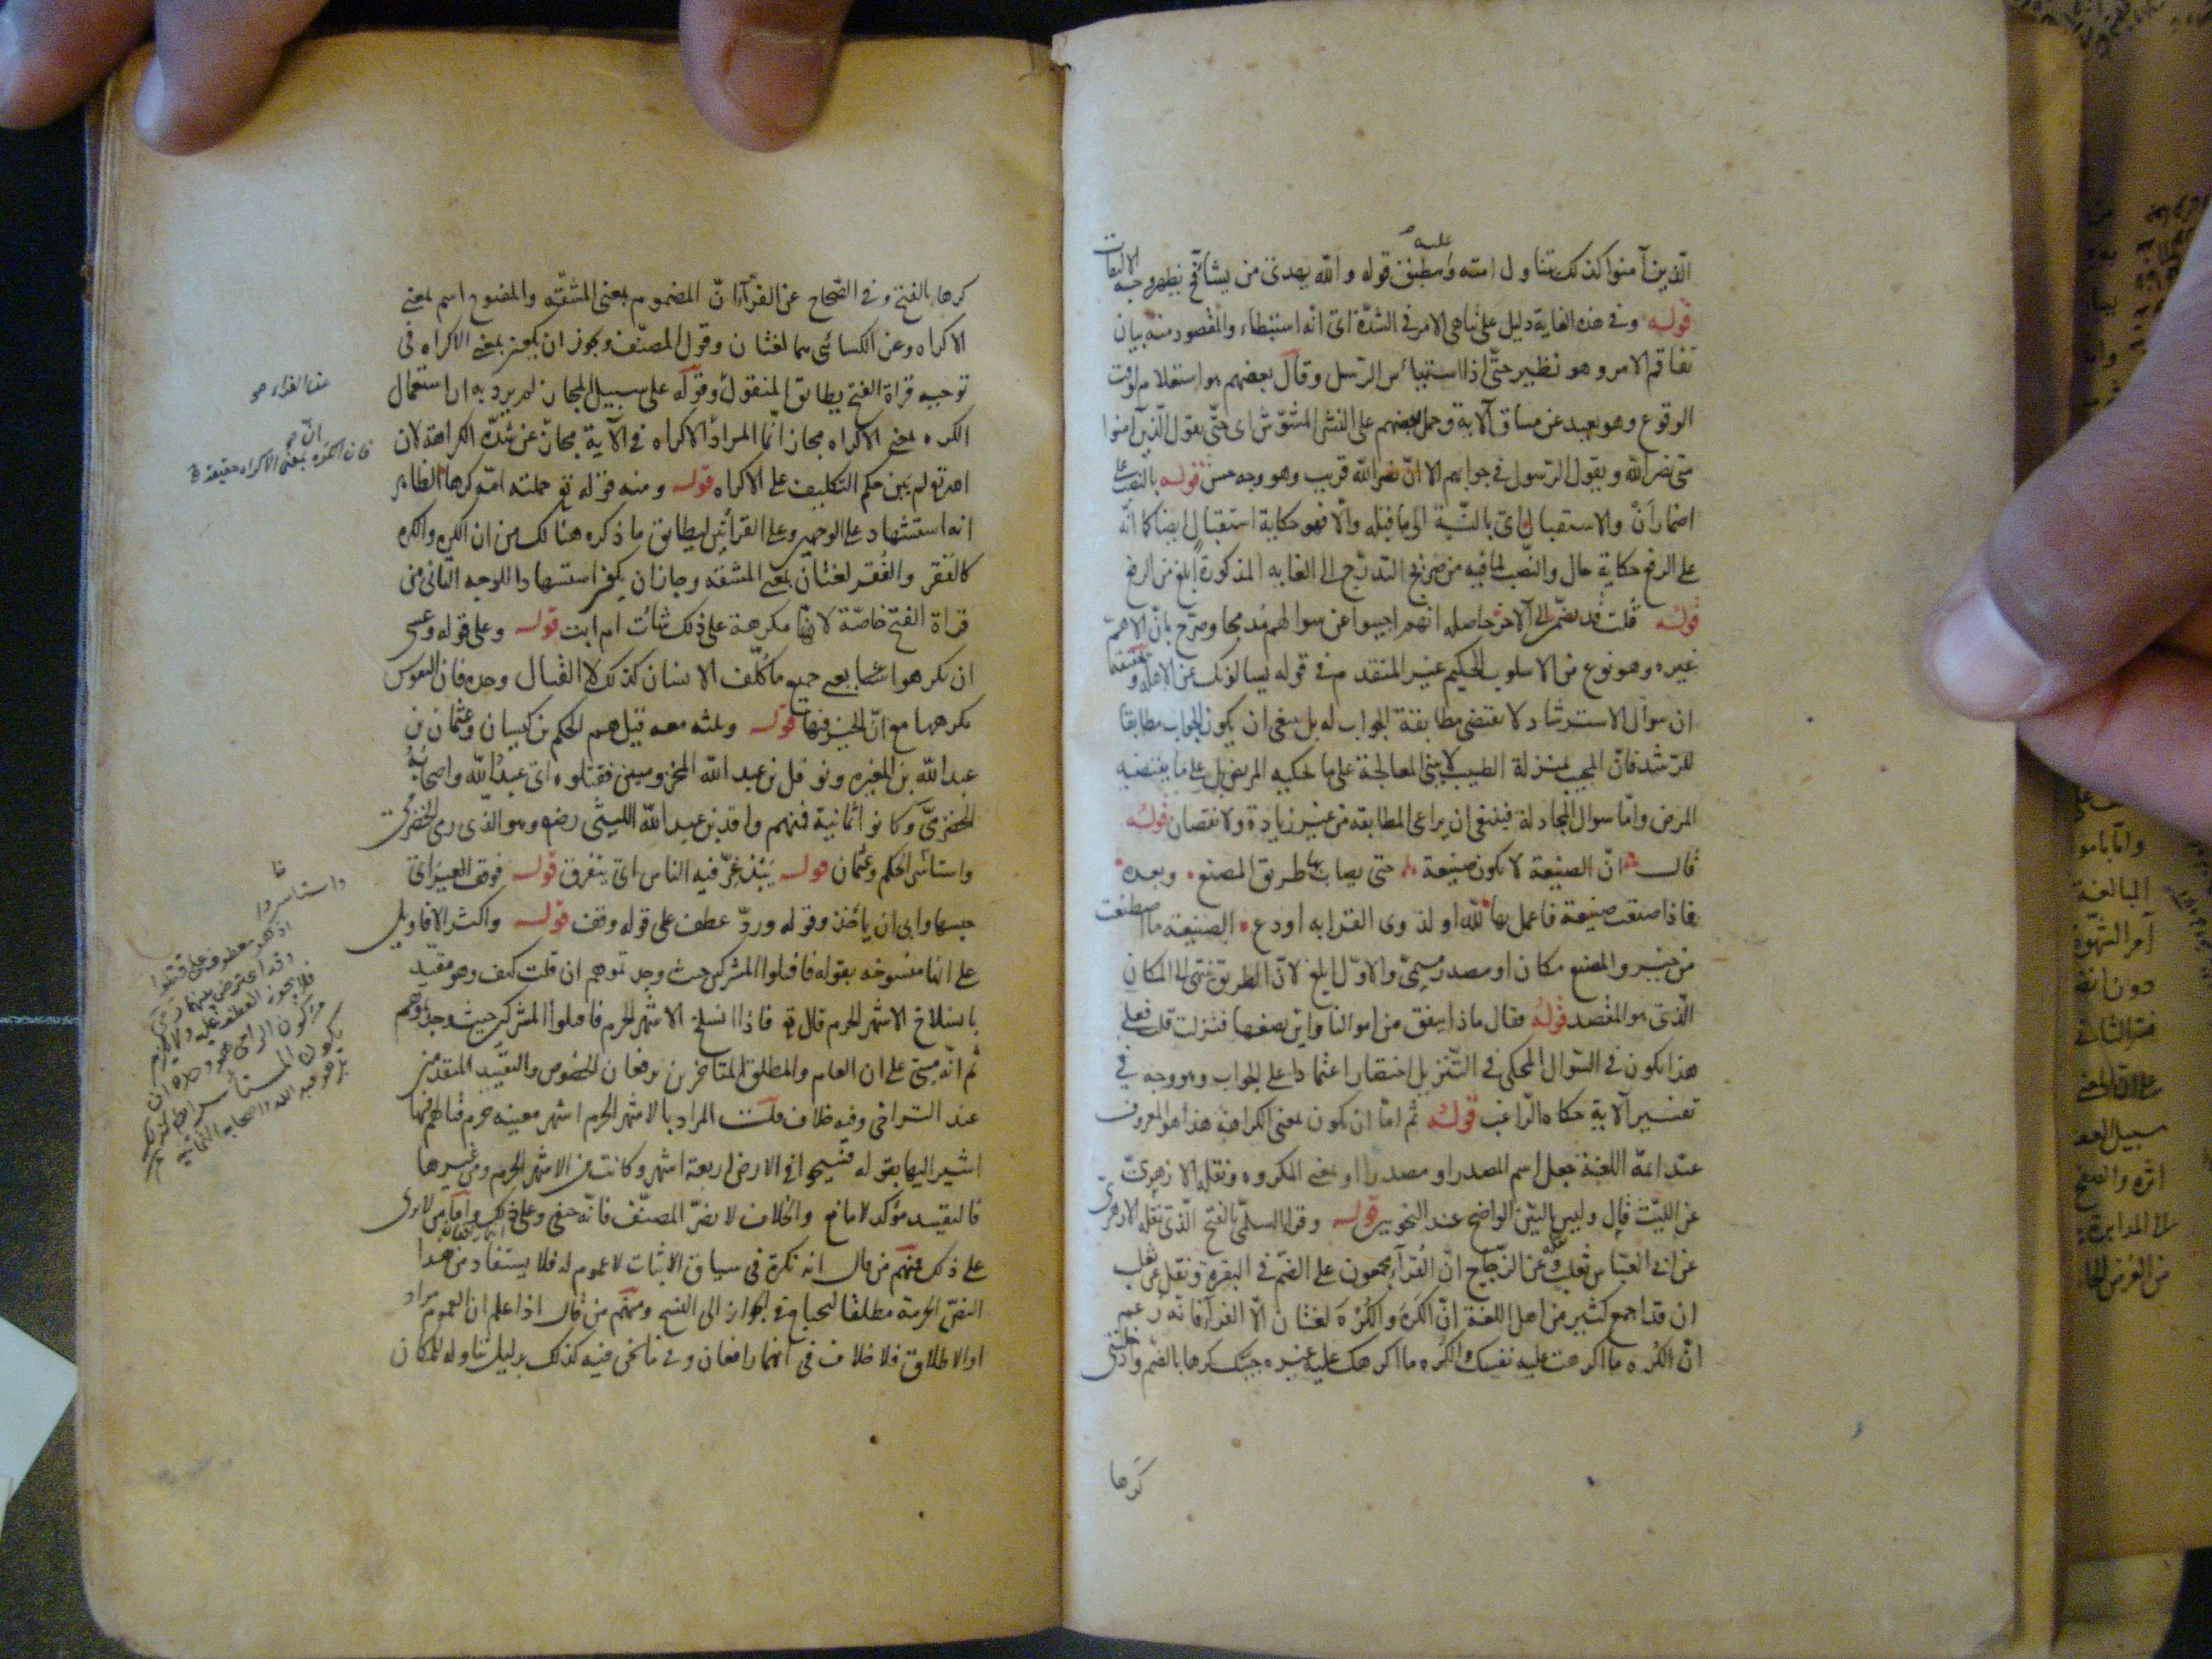 الذين آمنوا كذلك يتناول امته وينطبق عليه قوله والله يهدى من يشاء فح يظهر وجه الالتفات
قوله وفى هذه الغاية دليل على تناهى الامر فى الشدة اى انه استبطاء والمقصود منه بيان
تفاقم الامر وهو نظير حتى اذا استيئس الرسل وقال بعضهم هو استعلام لوقت
الوقوع وهو بعيد عن مساق الآية وحمل بعضهم على النشر المشوش اى حتى يقول الذين آمنوا
متى نصر الله ويقول الرسول فى جوابهم الا ان نصر الله قريب وهو وجه حسن قوله بالنصب على
اضمار أن والاستقبال اى بالنسبة الى ما قبله والا فهو حكاية استقبال ايضا كما انه
على الرفع حكاية حال والنصب لما فيه من صريح التدرج الى الغاية المذكورة ابلغ من الرفع
قوله قلت قد تضمن الى الآخر حاصله انهم اجيبوا عن سوالهم مدمجا وصرح بان الاهم
غيره وهو نوع من الاسلوب الحكيم غير المتقدم فى قوله يسالونك عن الاهلة وتحقيقه
ان سوال الاسترشاد لا يقتضى مطابقة الجواب له بل ينبغى ان يكون الجواب مطابقا
للرشد فان المجيب بمنزلة الطبيب لا يبنى المعالجة على ما يحكيه المريض بل على ما يقتضيه
المرض واما سوال المجادلة فينبغى ان يراعى المطابقة من غير زيادة ولا نقصان قوله
قال ان الصنيعة لا تكون صنيعة حتى يصاب بها طريق المصنع وبعده
فاذا صنعت صنيعة فاعمل بها لله او لذوى القرابه او دع الصنيعة ما اصطنعت
من خير والمصنع مكان او مصدر ميمى والاول ابلغ لان الطريق ينتهى الى المكان
الذى هو المقصد قوله فقال ماذا ينفق من اموالنا واين يضعها فنزلت قلت فعلى
هذا يكون فى السوال المحكى فى التنزيل اختصار اعتمادا على الجواب وهو وجه فى
تفسير الآية حكاه الراغب قوله ثم اما ان يكون بمعنى الكراهة هذا هو المعروف
عند ائمة اللغة جعل اسم المصدر او مصدرا او بمعنى المكروه ونقل الازهرى
عن الليث قال وليس بالبين الواضح عند النحويين قوله وقرا السلمى بالفتح الذى نقله الازهرى
عن ابى العباس ثعلب وعن الزجاج ان القراء مجمعون على الضم فى البقرة ونقل عن ثعلب
ان قد اجمع كثير من اهل اللغة ان الكره والكره لغتان الا الفراء فانه زعم
ان الكره ما اكرهت عليه نفسك والكره ما اكرهك عليه غيره جئتك كرها بالضم وادخلتنى
كرها
كرها بالفتح وفى الصحاح عن الفراء ان المضموم بمعنى المشقة والمفتوح اسم بمعنى
الاكراه وعن الكسائى هما لغتان وقول المصنف ويجوز ان يكون بمعنى الاكراه فى
توجيه قراة الفتح يطابق المنقول وقوله على سبيل المجاز لم يرد به ان استعمال
الكره بمعنى الاكراه مجاز انما المراد الاكراه فى الآية مجاز عن شدة الكراهة لان
الله تع لم يبن حكم التكليف على الاكراه قوله ومنه قوله تع حملته امه كرها الظاهر
انه استشهاد على الوجهين وعلى القرائتين ليطابق ما ذكره هنالك من ان الكره والكره
كالفقر والفقر لغتان بمعنى المشقة وجاز ان يكون استشهادا للوجه الثانى من
قراة الفتح خاصة لانها مكرهة على ذلك شات ام ابت قوله وعلى قوله وعسى
ان تكرهوا شيا بمعنى جميع ما كلف الانسان كذلك لا القتال وحده فان النفوس
تكرهها مع ان الخير فيها قوله وثلثه معه قيل هم الحكم بن كيسان وعثمان بن
عبد الله بن المغيره ونوفل بن عبد الله المخزوميين فقتلوه اى عبد الله واصحابه
الحضرمى وكانوا ثمانية فمنهم واقد بن عبد الله الليثى رضه وهو الذى رمى الحضرمى
واستاسر الحكم وعثمان قوله يبذعر فيه الناس اى يتفرق قوله فوقف العير اى
حبسها وابى ان ياخذ وقوله ورد عطف على قوله وقف قوله واكثر الاقاويل
على انها منسوخه بقوله فاقتلوا المشركين حيث وجدتموهم ان قلت كيف وهو مقيد
بانسلاخ الاشهر الحرم قال تع فاذا انسلخ الاشهر الحرم فاقتلوا المشركين حيث وجدتموهم
ثم انه مبنى على ان العام والمطلق المتاخرين يرفعان الخصوص والتقييد المتقدمين
عند التراخى وفيه خلاف قلت المراد بالاشهر الحرم اشهر معينه حرم قتالهم فيها
اشير اليها بقوله فسيحوا فى الارض اربعة اشهر وكانت من الاشهر الحرم ومن غيرها
فالتقييد مؤكد لا مانع والخلاف لا يضر المصنف فانه حنفى وعلى ذلك واما من لا يرى
على ذلك فمنهم من قال انه نكرة فى سياق الاثبات لا عموم له فلا يستفاد من هذا
النص الحرمة مطلقا ليحتاج فى الجواز الى النسخ ومنهم من قال اذا علم ان العموم مراد
او الاطلاق فلا خلاف فى انهما رافعان وفى ما نحن فيه كذلك بدليل تناوله للمكان
عند الفراء
فان الكره بمعنى الاكراه حقيقة
واستاسروا
اذ هو معطوف على قتلوا
وقد اعترض بينهما
فلا يجوز العطف عليه